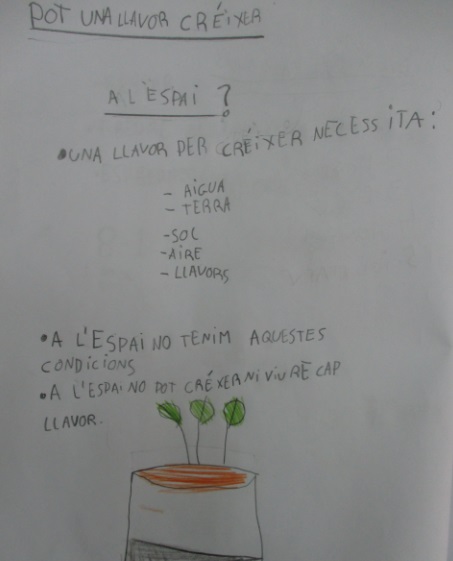 POT UNA LLAVOR CRÉIXER
A L'ESPAI?
•UNA LLAVOR PER CRÉIXER NECESSITA:
- AIGUA
- TERRA
-SOL
-AIRE
- LLAVORS
•A L'ESPAI NO TENIM AQUESTES
CONDICIONS
•A L'ESPAI NO POT CRÉXER NI VIURE CAP
LLAVOR.